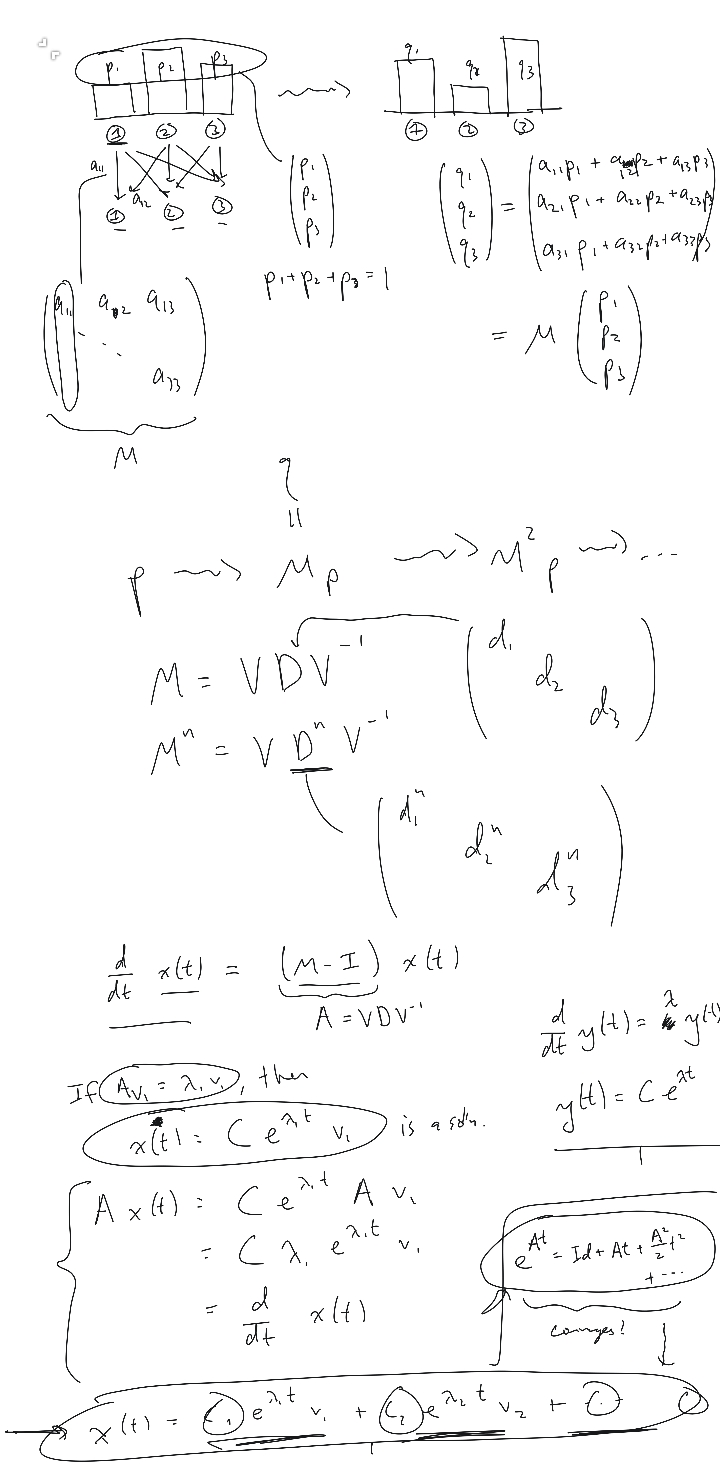 p₁ p₂ p₃
q₁ q₂ q₃
① ② ③
① ② ③
a₁₁ a₁₂
① ② ③
(p₁ p₂ p₃)
p₁ + p₂ + p₃ = 1
(q₁ q₂ q₃) = (a₁₁p₁ + a₁₂p₂ + a₁₃p₃
a₂₁p₁ + a₂₂p₂ + a₂₃p₃
a₃₁p₁ + a₃₂p₂ + a₃₃p₃)
= M (p₁ p₂ p₃)
(a₁₁ a₁₂ a₁₃
⋱
a₃₃)
M
q
=
p → Mp → M²p → ...
M = VDV⁻¹
(d₁ d₂ d₃)
Mⁿ = V Dⁿ V⁻¹
(d₁ⁿ d₂ⁿ d₃ⁿ)
d/dt x(t) = (M - I) x(t)
A = VDV⁻¹
d/dt y(t) = λ y(t)
y(t) = C e^{λt}
If Av₁ = λ₁v₁, then
x(t) = C e^{λ₁t} v₁ is a soln.
A x(t) = C e^{λ₁t} A v₁
= C λ₁ e^{λ₁t} v₁
= d/dt x(t)
e^{At} = Id + At + A²/2 t²
+ ...
converges!
x(t) = C₁ e^{λ₁t} v₁ + C₂ e^{λ₂t} v₂ +